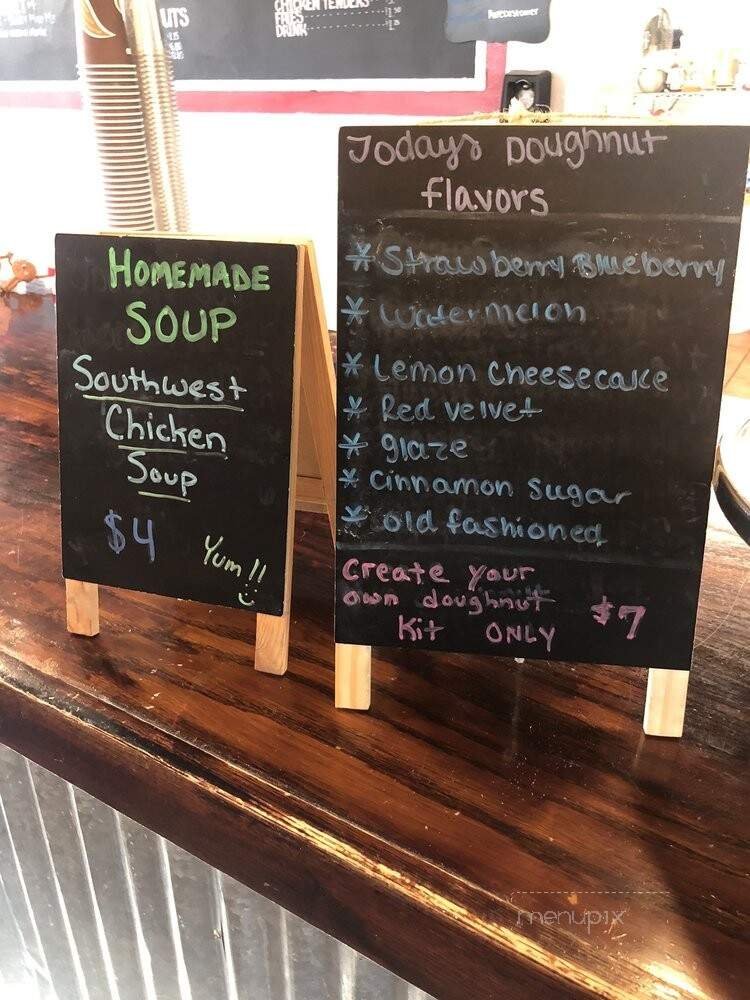 UTS
CHICKEN TENDERS
FRIES
DRINK
HOMEMADE
SOUP
Southwest
Chicken
Soup
$4
Yum!!
Todays Doughnut
flavors
* Strawberry Blueberry
* Watermelon
* Lemon Cheesecake
* Red velvet
* glaze
* cinnamon sugar
* old fashioned
Create your
own doughnut
Kit ONLY
$7
menupix